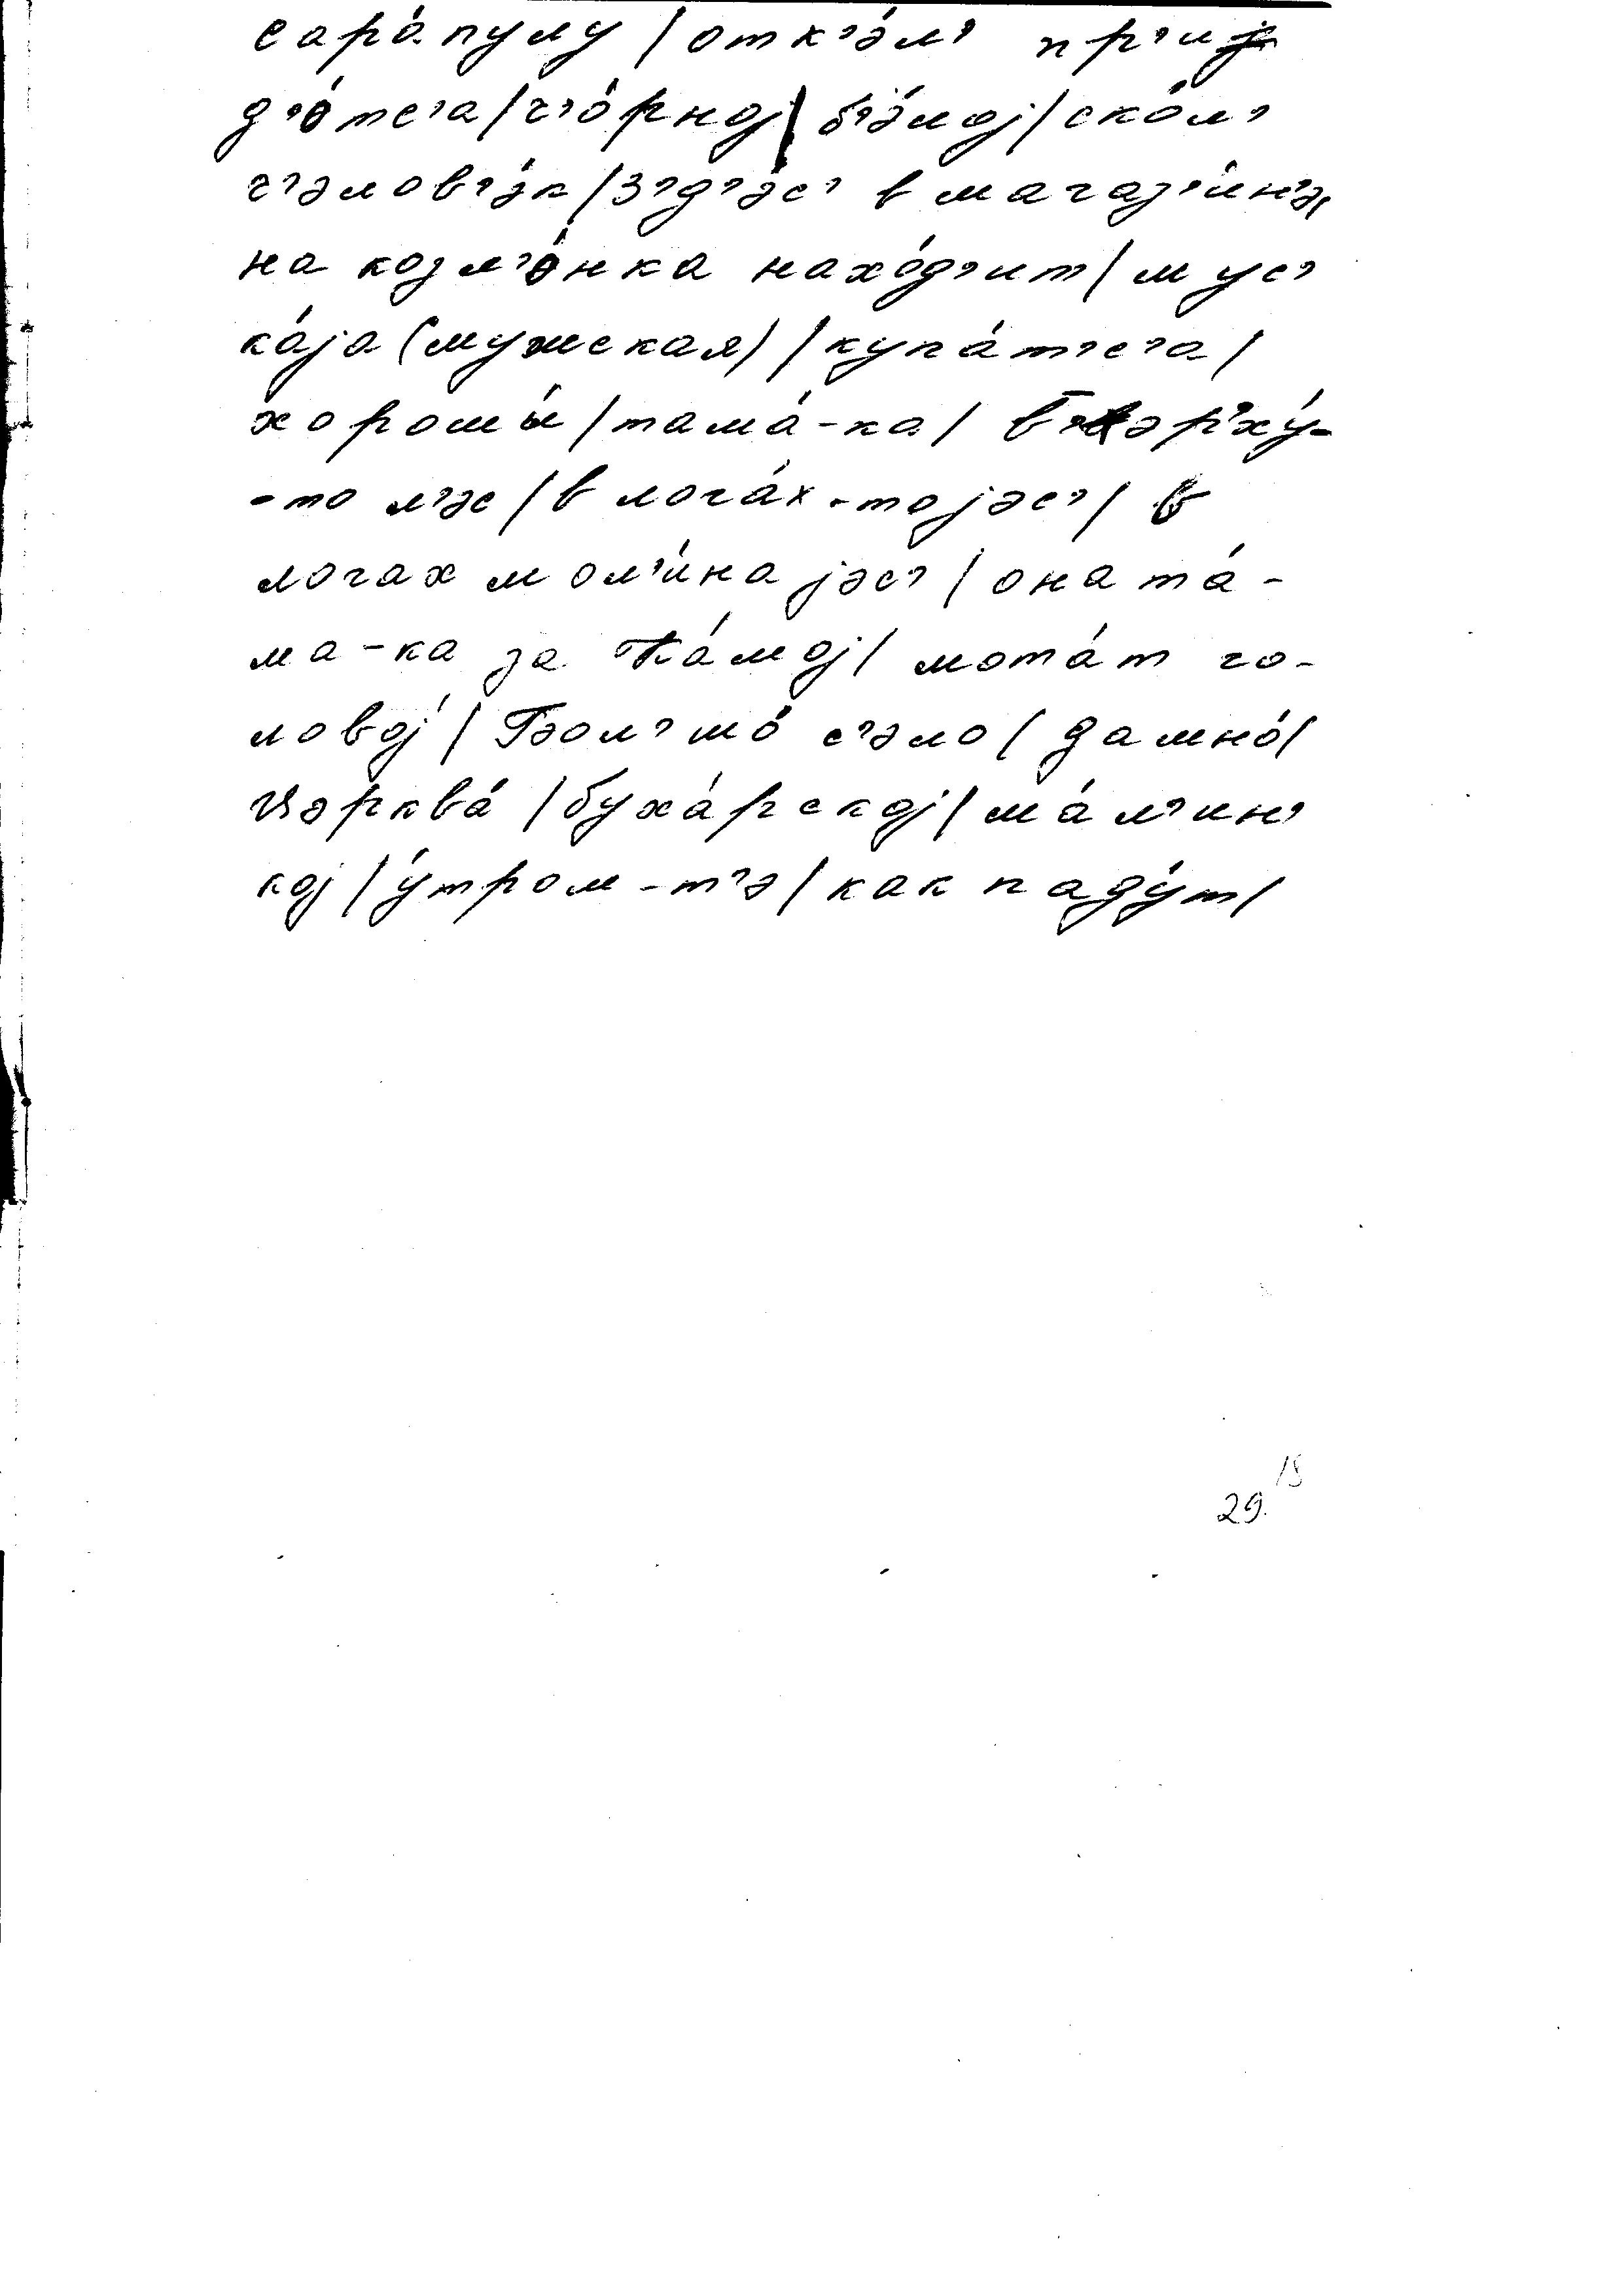 сара́пулу / отк'э́л' пр'иј
д'о́тс'а / ч'о́рној / б'э́лој / ско́л'
ч'элов'э́к / з'д'эс' в магаз'и́н'э /
на козл'о́нка нахо́д'ит / мус'
ка́ја (мужская) / купа́т'с'а /
хоромы́ / тама́-ка / в'эрху́-
-то л'эс / в лога́х-то јэс' / в
логах мол'и́на јэс' / она та́-
ма-ка за Ка́мој / мота́т го-
лово́ј / Бол'шо́ с'эло / дамно́ /
цэрква́ / буха́рској / ма́л'ин'
кој / у́тром-т'э / как паду́т /
15
29.